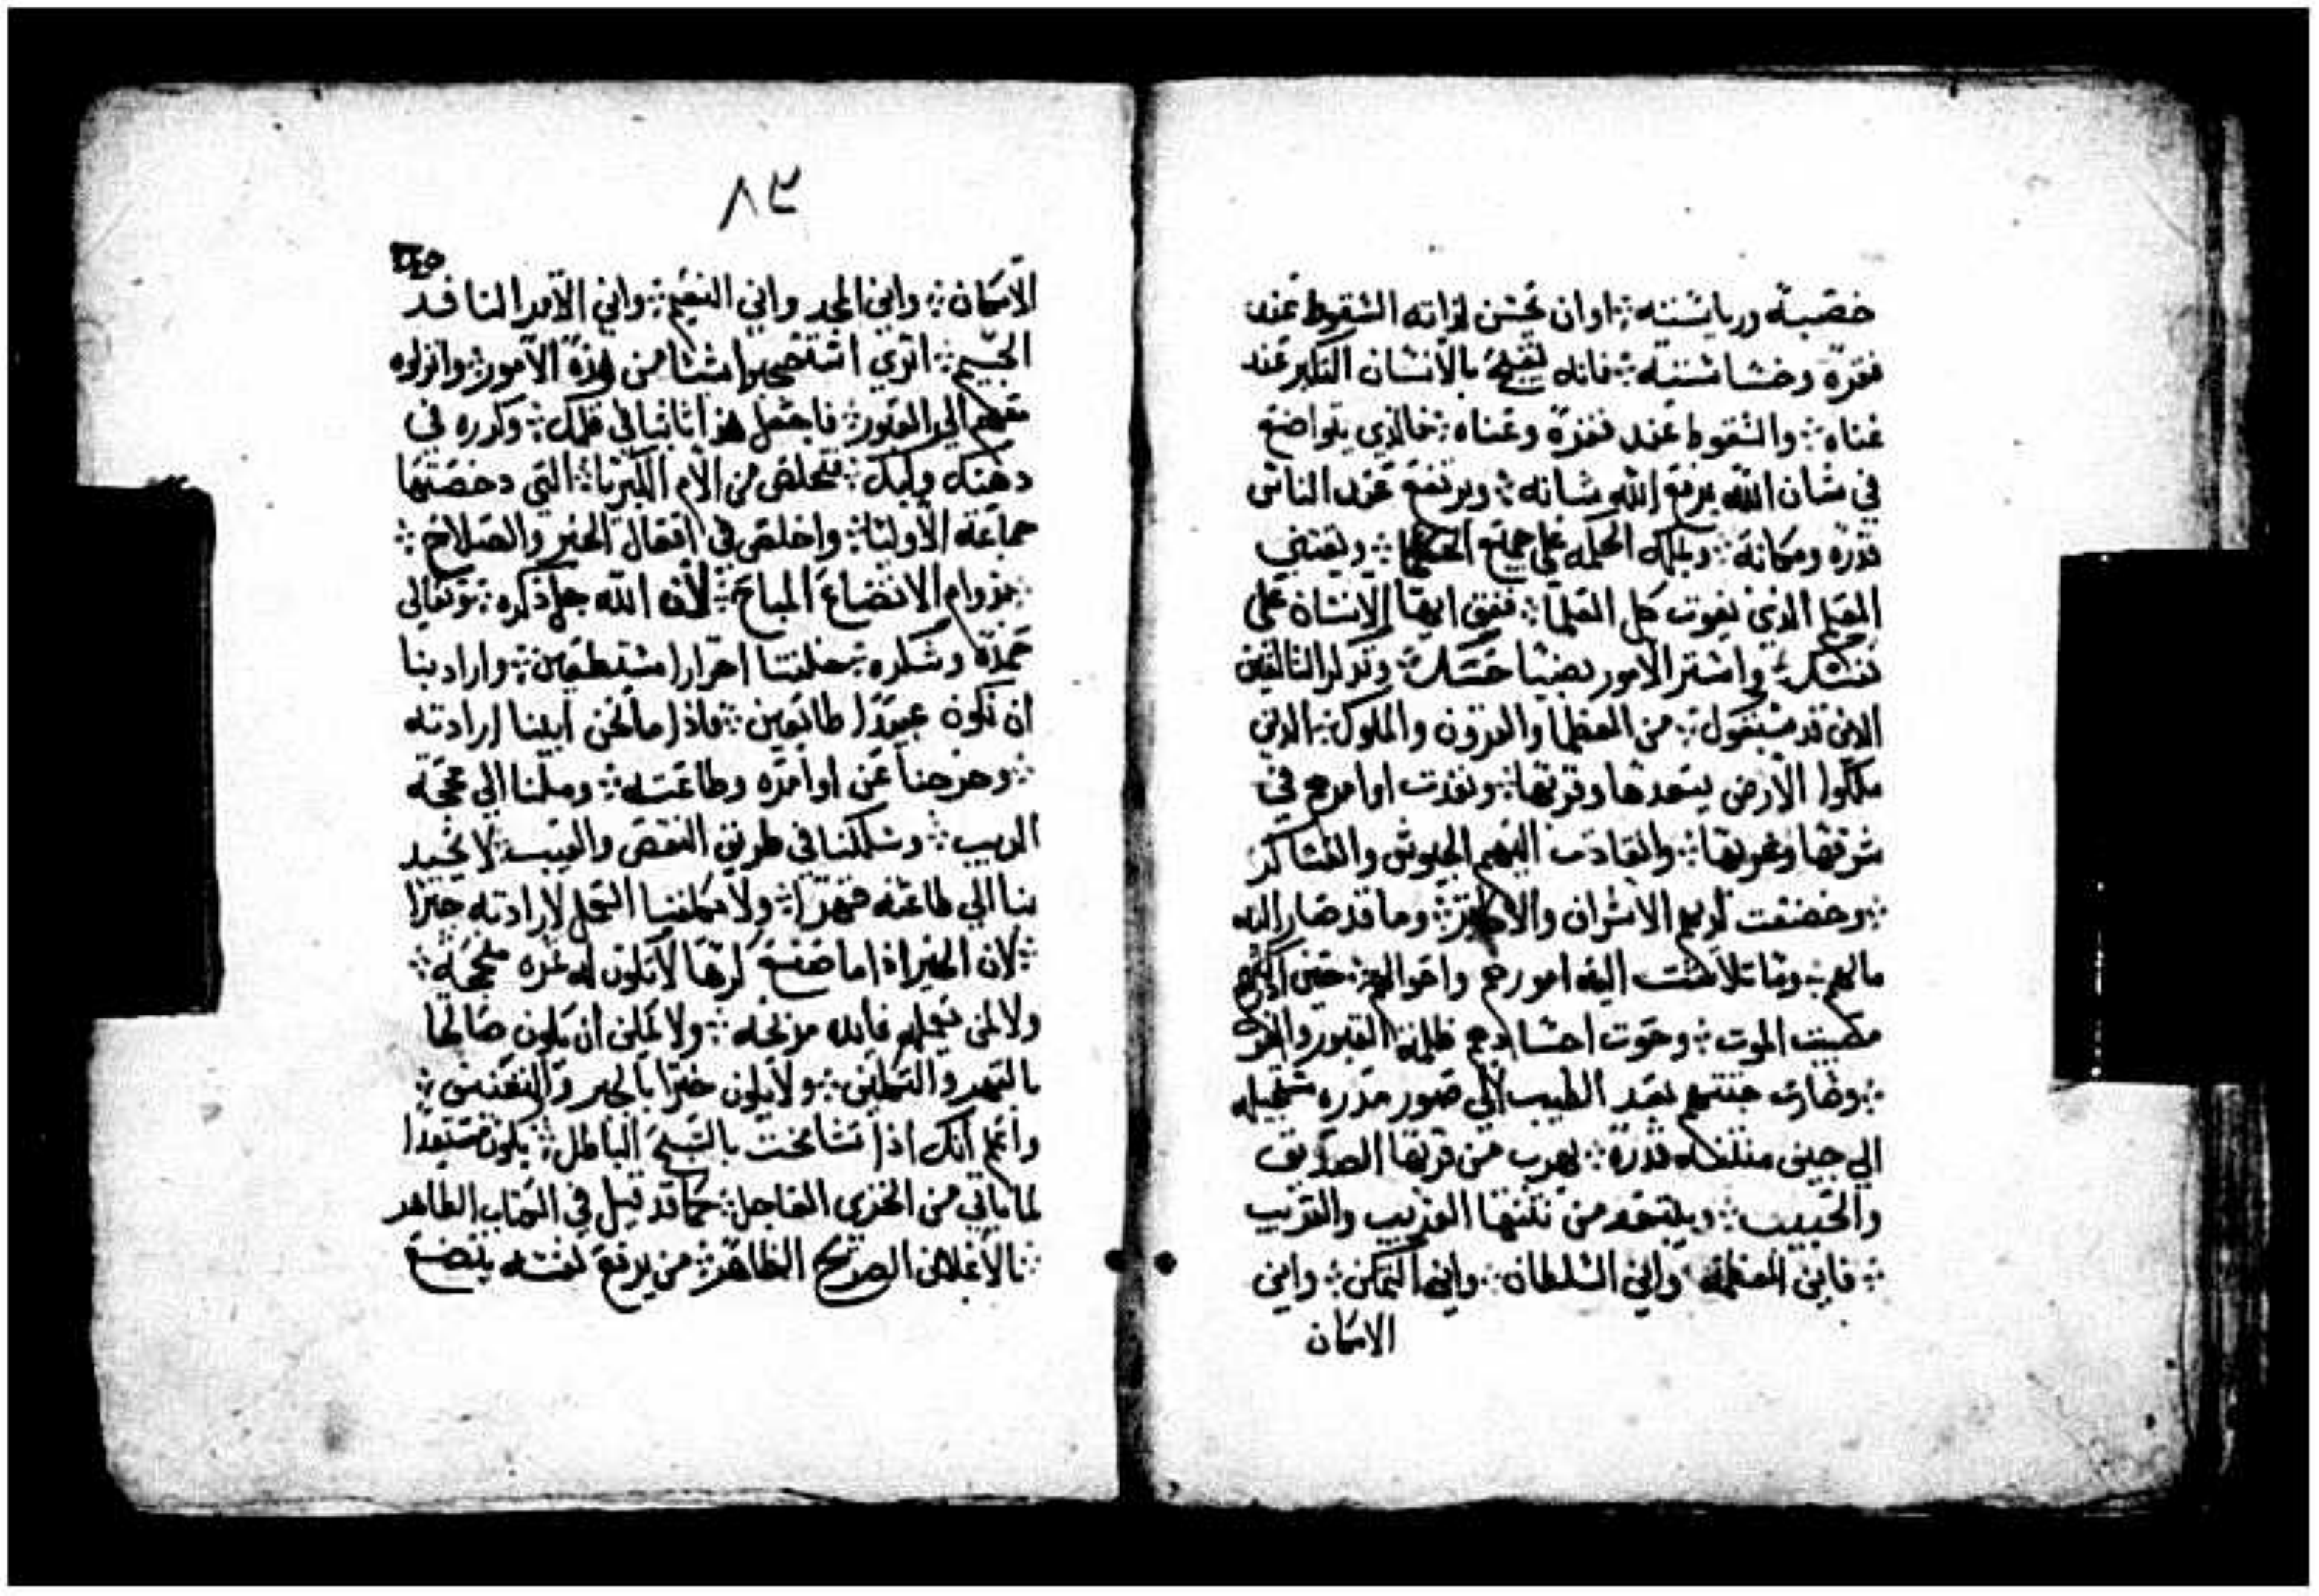 خصبه ورياسته ܀ او ان تحسن لذاته السقوط عند
فقره وخساسته ܀ فانه يقبح بالانسان التكبر عند
غناه ܀ والسقوط عند فقره وعناه ܀ فالذي يتواضع
في شان الله يرفع الله شانه ܀ ويرتفع عند الناس
قدره ومكانه ܀ ويملك الحكمه على جميع الحكما ܀ ويقتني
العقل الذي يفوت كل العلما ܀ فقف ايها الانسان على
نفسك ܀ واستر الامور بضيا حسك ܀ وتذكر السالفين
الذين قد سبقوك ܀ من العظما والقرون والملوك ܀ الذين
ملكوا الارض ببعدها وقربها ܀ ونفذت اوامرهم في
شرقها وغربها ܀ وانقادت اليهم الجيوش والعساكر
܀ وخضعت لديهم الاشراف والاكابر ܀ وما قد صار اليه
مالهم ܀ وما تلاشت اليه امورهم واحوالهم ܀ حين ادركهم
مصيبت الموت ܀ وحوت اجسادهم ظلمة القبور
܀ وصارت جثتهم بعد الطيب الي صور مذره مستحيله
الي جيف منتنه قذره ܀ يهرب من قربها الصديق
والحبيب ܀ ويبتعد من نتنها الغريب والقريب
܀ فاين العظمه واين السلطان ܀ واين التمكن ܀ واين
الامكان
٨٣
الامكان ܀ واين المجد واين النعيم ܀ واين الامر النافد
الجسيم ܀ اتري استصحبوا شيا من هذه الامور ܀ وانزلوه
معهم الي القبور ܀ فاجعل هذا ثابتا في قلبك ܀ وكرره في
دهنك ولبك ܀ فتخلص من الام الكبريا ܀ التي دحضتها
جماعة الاوليا ܀ واخلص في افعال الخير والصلاح ܀
܀ بدوام الاتضاع المباح ܀ لان الله جل ذكره ܀ وتعالى
حمده وشكره ܀ خلقنا احرارا مستطيعين ܀ واراد بنا
ان نكون عبيدا طائعين ܀ فاذا ما نحن ابينا ارادته
܀ وخرجنا عن اوامره وطاعته ܀ وملنا الي محجة
الريب ܀ وسلكنا في طريق النقص والعيب ܀ لا يجيد
بنا الي طاعته قهرا ܀ ولا يكلفنا العمل لارادته جبرا
܀ لان الخيرات اما صنع كرها لا تكون له عنده محجه ܀
ولا لمن يعمله فايده مربحه ܀ ولا يمكن ان يكون صالحا
بالقهر والتمكين ܀ ولا يكون خيرا بالجبر والتعنيف ܀
واعلم انك اذا تشامخت بالسبح الباطل ܀ تكون مستعدا
لما ياتي من الخزي العاجل ܀ كما قد قيل في الكتاب الطاهر
܀ بالاعلان الصريح الظاهر ܀ من يرفع نفسه يتضع